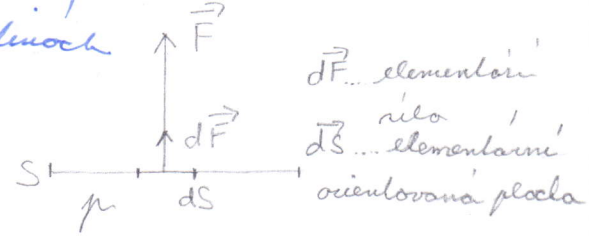 F⃗
dF⃗
S
dS
p
dF⃗ ... elementární
síla
dS⃗ ... elementární
orientovaná plocha